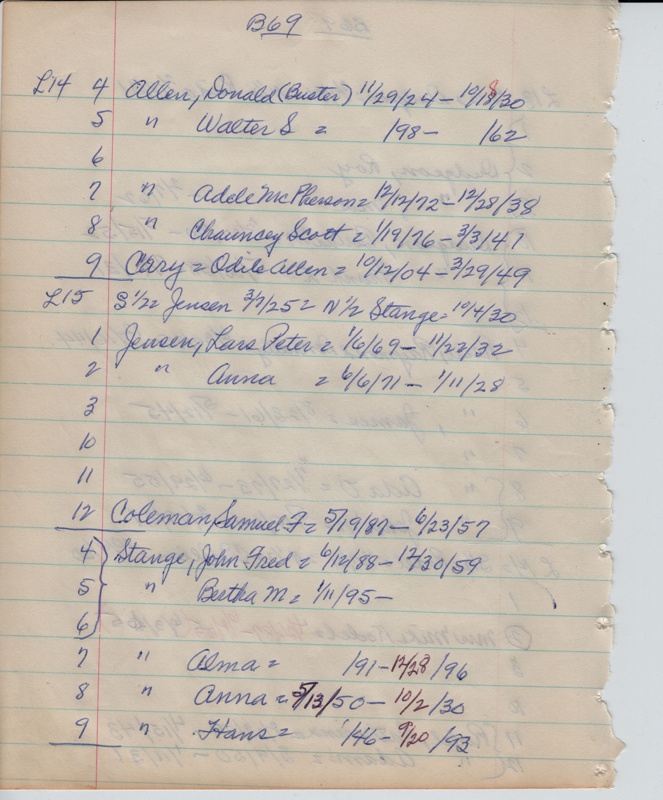 B69
L14 4 Allen, Donald (Buster) 11/29/24 - 10/18/30
5 " Walter S = /98 - /62
6
7 " Adele McPherson = 12/12/72 - 12/28/38
8 " Chauncey Scott = 1/19/76 - 3/3/47
9 Cary = Odile Allen = 10/12/04 - 3/29/49
L15 S 1/2 = Jensen 3/7/25 = N 1/2 Stange = 10/4/30
1 Jensen, Lars Peter = 1/6/69 - 11/22/32
2 " Anna = 6/6/71 - 1/11/28
3
10
11
12 Coleman, Samuel F = 5/19/87 - 6/23/57
4 } Stange, John Fred = 6/12/88 - 12/30/59
5 " Bertha M = 1/11/95 -
6
7 " Alma = /91 - 12/28/96
8 " Anna = 5/13/50 - 10/2/30
9 " Hans = /46 - 9/20/93